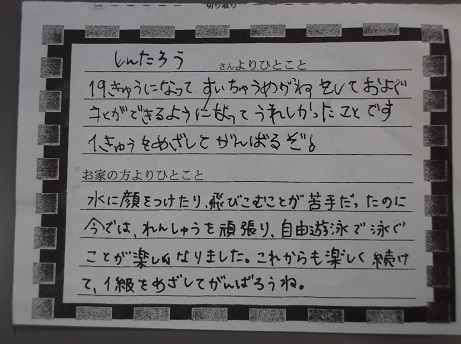 切り取り
しんたろう さんよりひとこと
19きゅうになって、すいちゅうめがねをしておよぐ
ことができるようになってうれしかったことです
1きゅうをめざしてがんばるぞ!
お家の方よりひとこと
水に顔をつけたり、飛びこむことが苦手だったのに
今では、れんしゅうを頑張り、自由遊泳で泳ぐ
ことが楽しくなりました。これからも楽しく続け
て、1級をめざしてがんばろうね。